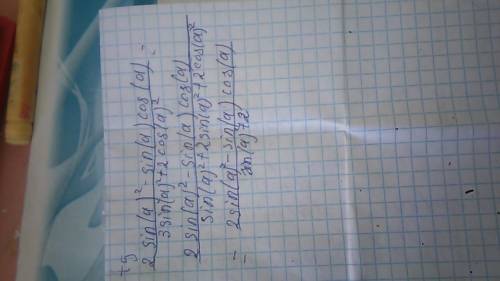 2 sin(a)² - sin(a) cos(a) =
3 sin(a)² + 2 cos(a)²
2 sin(a)² - sin(a) cos(a)
sin(a)² + 2 sin(a)² + 2 cos(a)²
= 2 sin(a)² - sin(a) cos(a)
sin(a) + 2